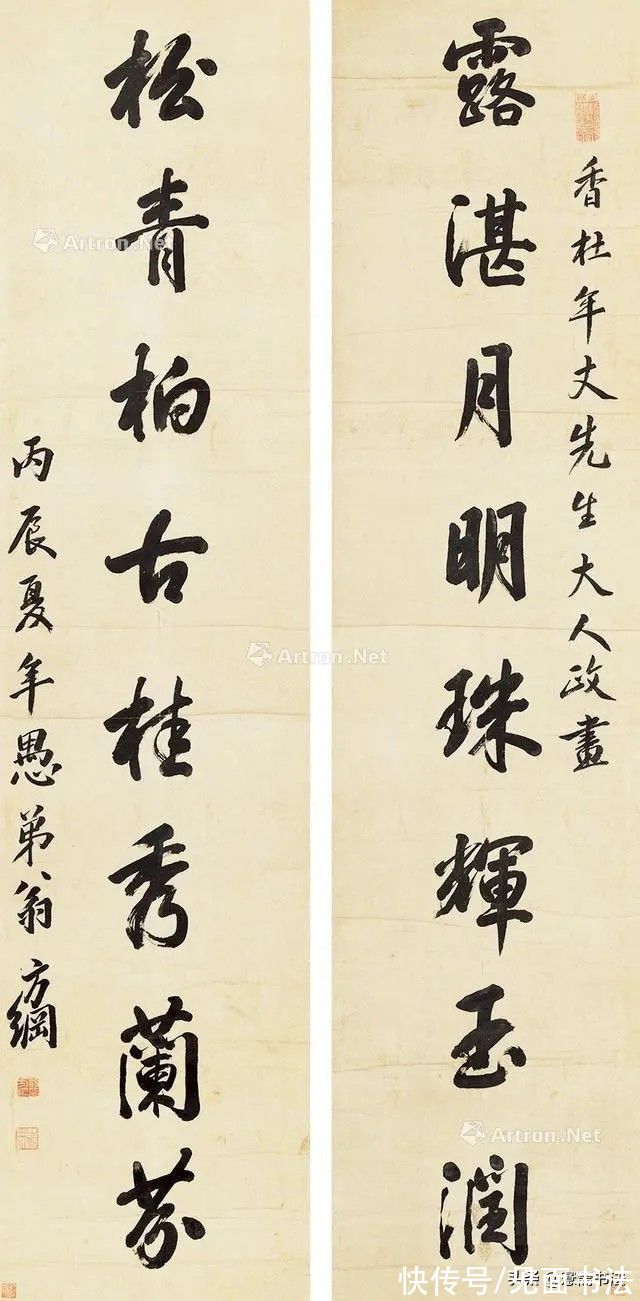 香杜年丈先生大人政畫
露湛月明珠輝玉潤
松青柏古桂秀蘭芬
丙辰夏年愚弟翁方綱
Artron.Net
Artron.Net
Artron.Net
快传号/见面书法